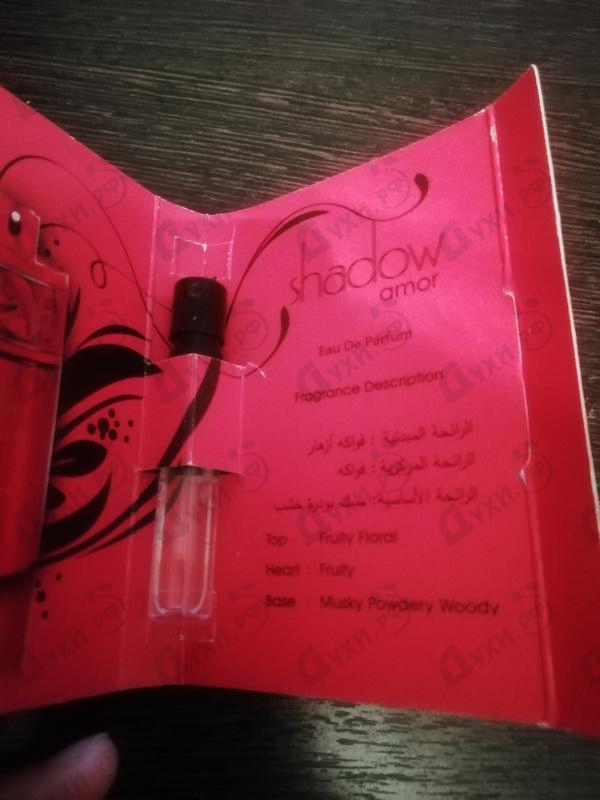 shadow
amor
Eau De Parfum
Fragrance Description
الرائحة المبدئية : فواكه أزهار
الرائحة المركزية : فواكه
الرائحة الأساسية: مسك بودرة خشب
Top : Fruity Floral
Heart : Fruity
Base : Musky Powdery Woody
духи.рф